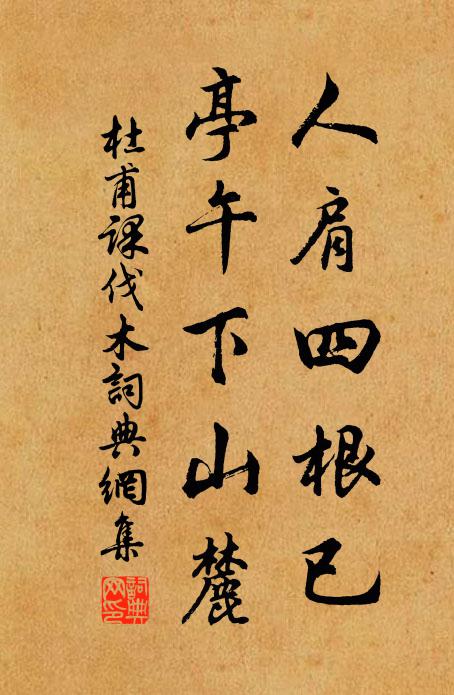 人肩四根已
亭午下山麓
杜甫課伐木詞典網集
詞典網印